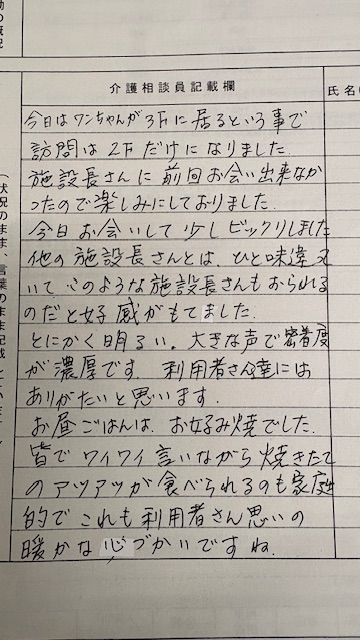 動の概況
介護相談員記載欄
氏名
(状況のまま、言葉のまま記載してください
今日はワンちゃんが3Fに居るという事で
訪問は2Fだけになりました。
施設長さんに前回お会い出来なか
ったので楽しみにしておりました。
今日お会いして少しビックリしました
他の施設長さんとは、ひと味違って
いて このような施設長さんもおられる
のだと好感がもてました。
とにかく明るい。大きな声で密着度
が濃厚です。利用者さん達には
ありがたいと思います。
お昼ごはんは、お好み焼でした。
皆でワイワイ言いながら焼きたて
のアツアツが食べられるのも家庭
的でこれも利用者さん思いの
暖かな心づかいですね。